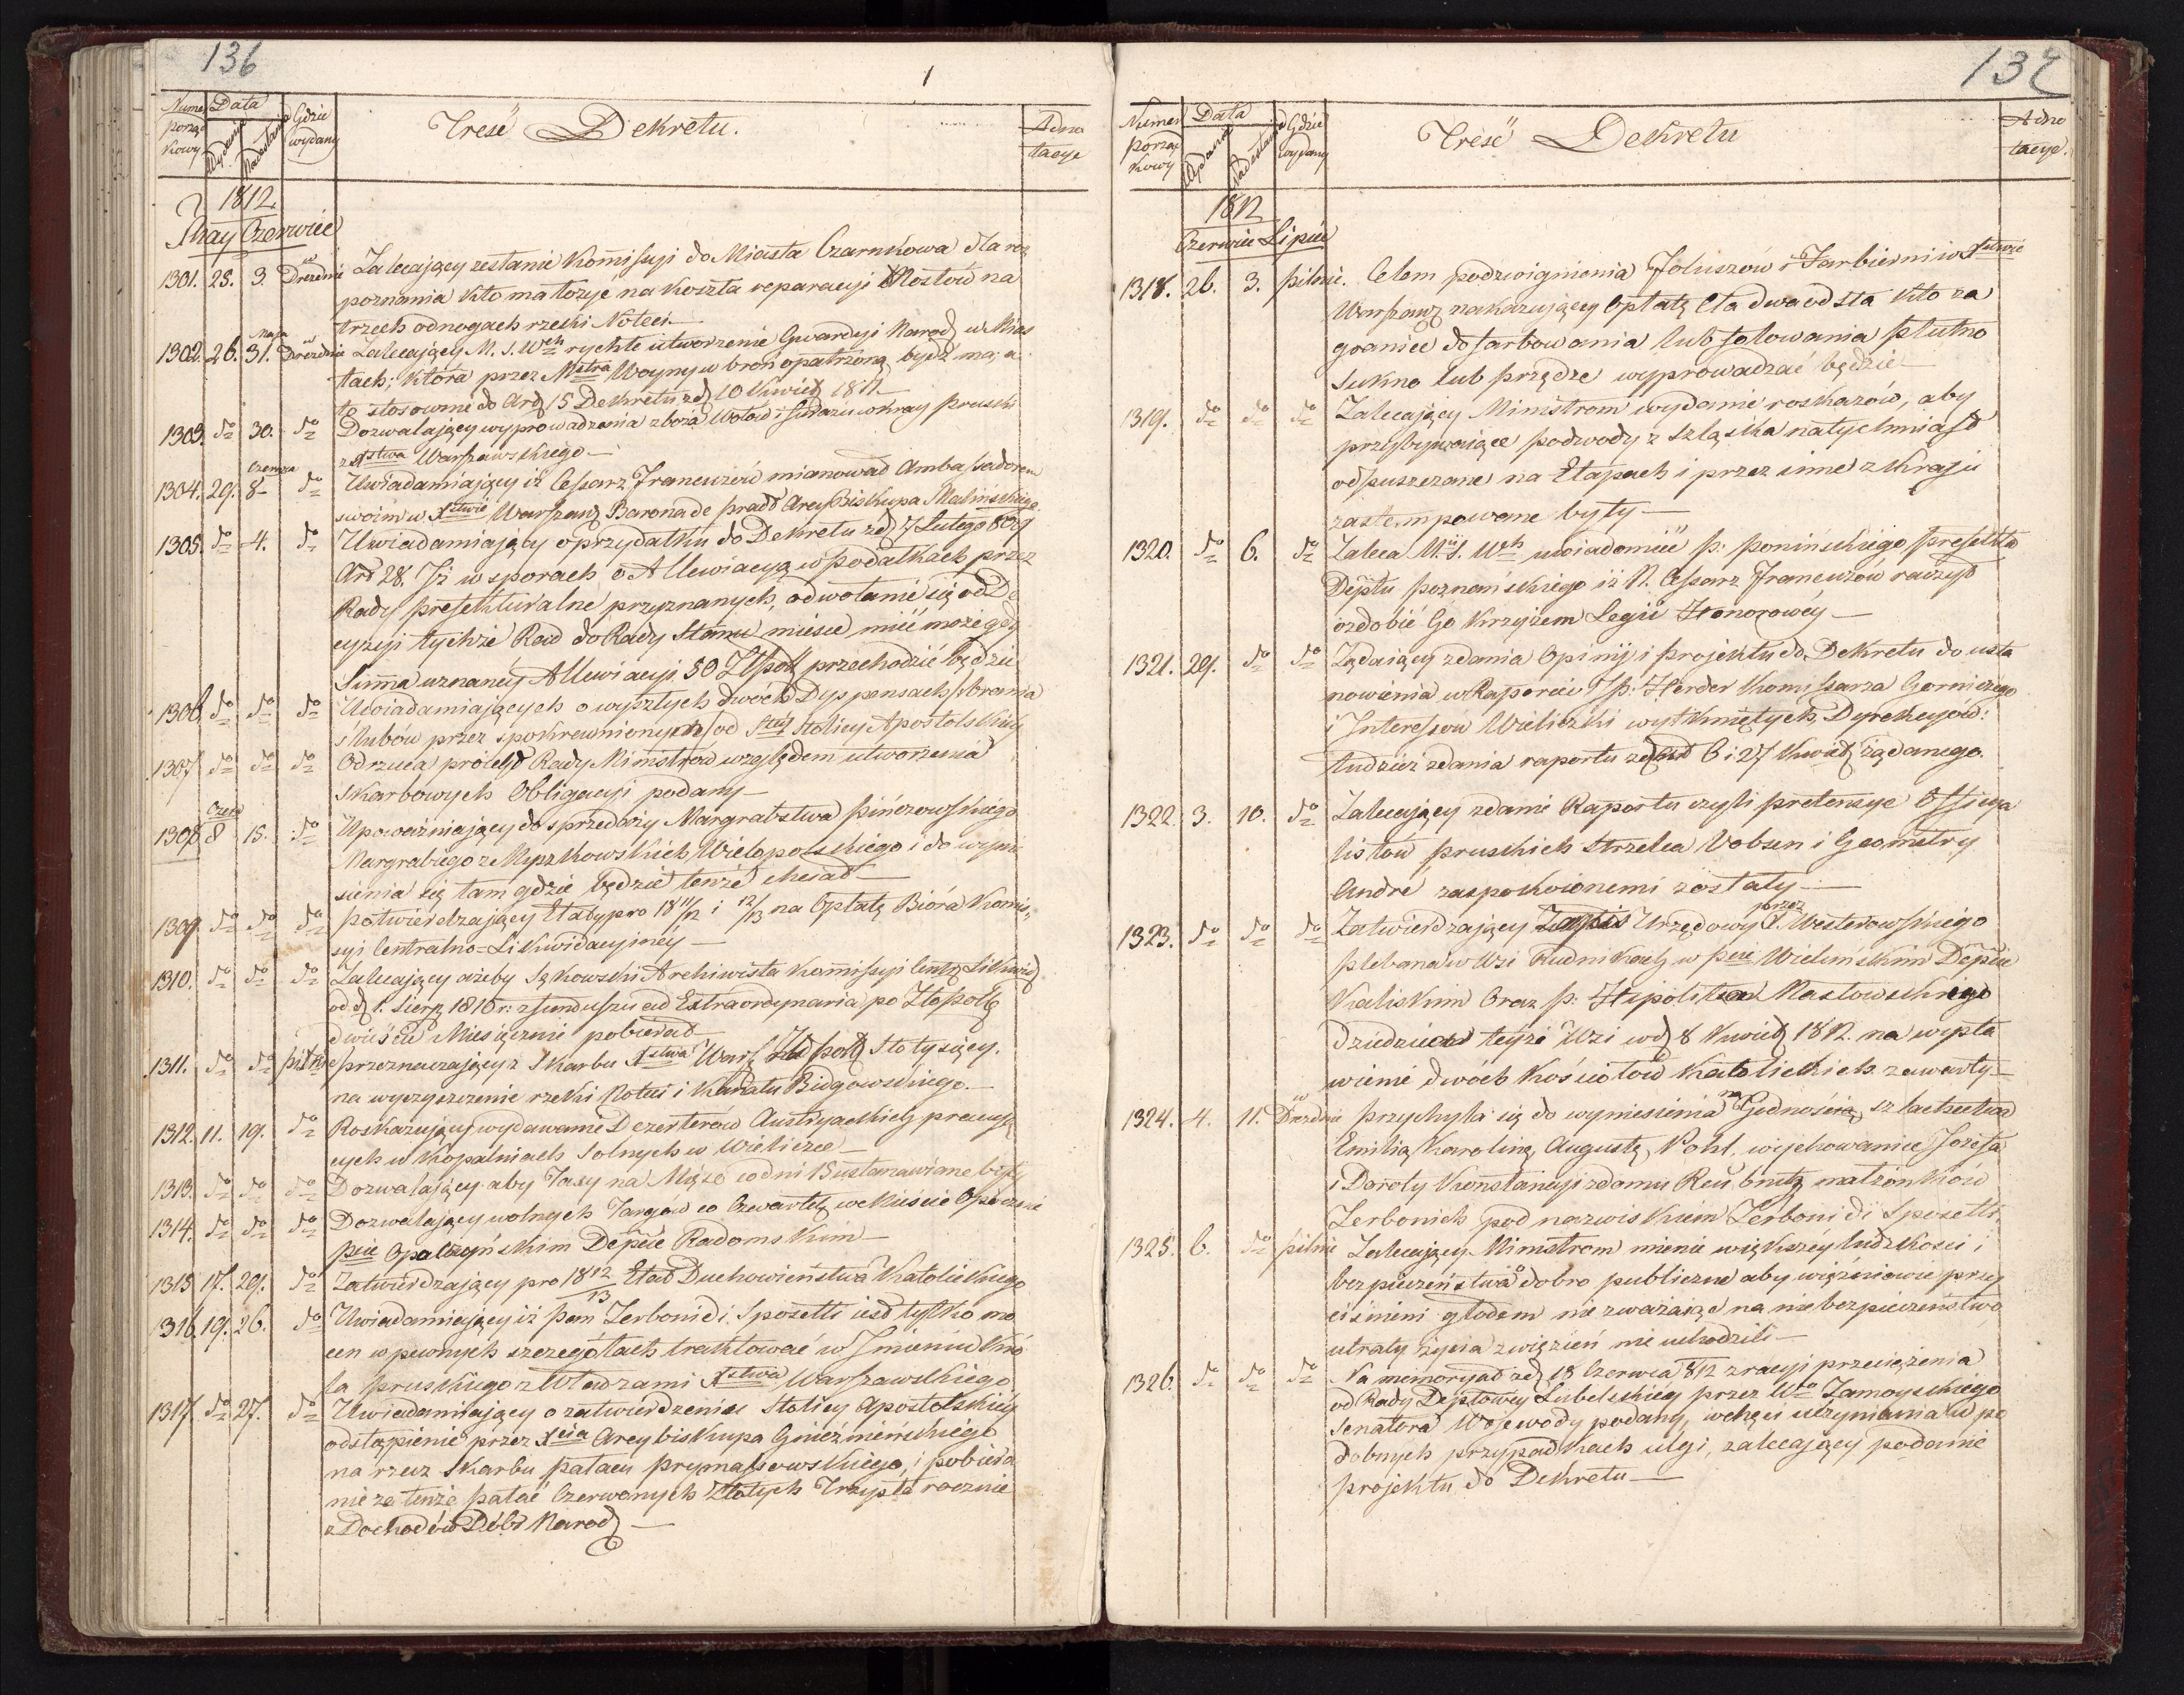 136
1
Numer porząkowy Data Wydania Nadesłania Gdzie wydany Treść Dekretu. Adnotacye
1812.
May Czerwiec
1301. 25. 3. w Dreźnie Zalecaiący zesłanie Kom̄issyi do Miasta Czarnkowa dla roz
poznania kto ma łożyć na koszta reparacyi Mostów na
trzech odnogach rzeki Noteci.—
1302. 26. Maja 31. w Dreźnie Zalecający M. S. Weh rychłe utworzenie Gwardyi Narod w Mias
tach; która przez Mstra Woyny w broń opatrzoną bydź ma, a
to stosownie do Art 15 Dekretu zd 10 Kwiet 1812.—
1303. do 30. do Dozwalający wyprowadzania zboża Wołów i furażu w kray pruski
z Xstwa Warszawskiego—
1304. 29. Czerwca 8 do Uwiadamiający iż Cesarz Francuzów mianował Ambassadorem
swoim w Xstwie Warszaw Barona de Pradt ArcyBiskupa Malińskiego.
1305. do 4. do Uwiadamiający o przydatku do Dekretu zd 7 Lutego 809
Art 28. Iż w sporach o Allewiacyą w podatkach przez
Rady prefekturalne przyznanych, odwołanie się od De
cyzyi tychże Rad do Rady Stanu miesce mieć może gdy
Sum̄a uznanéy Allewiacyi 50 Złpol przechodzić będzie
1306. do do do Uwiadamiających o wyszłych dwóch Dyspensach/brania
ślubów przez spokrewnionych/od Stey Stolicy Apostolskiey
1307. do do do Odrzuca projekt Rady Ministrów względem utworzenia
skarbowych Obligacyi podany—
1308. Czer 8 15. do Upoważniający do sprzedaży Margrabstwa Pińczowskiego
Margrabiego z Myszkowskich Wielopolskiego i do wynie
sienia się tam gdzie będzie tenże chciał—
1309. do do do Potwierdzający Etaty pro 18 11/12 i 12/13 na Opłatę Bióra Komis„
syi Centralno-Likwidacyjnéy—
1310. do do do Zalecający ażeby Sąkowski Archiwista Kom̄issyi Centr Likwid
od d 1. Sierp 1810 r. z funduszu ad Extraordynaria po Złopolg
dwieście Miesięcznie pobierał—
1311. do do Pilnie przeznaczający z Skarbu Xstwa Warsz Zł pol Sto tysięcy.
na wyczyszczenie rzeki Noteci i Kanału Bidgowskiego.—
1312. 11. 19. do Roskazujący wydawanie Dezerterów Austryackich pracują
cych w Kopalniach Solnych w Wieliczce—
1313. do do do Dozwalający aby Taxy na Mięso co dni 15 ustanawiane były
1314. do do do Dozwalający wolnych Targów co Czwartek w Mieście Opocznie
pcie Opoczyńskim Depcie Radomskim—
1315 17. 29. do Zatwierdzający pro 18 12/13 Etat Duchowieństwa Katolickiego
1316. 19. 26. do Uwiadamiający iż Pan Zerboni di Sposetti iest tylko mo
cen w pewnych szczegółach traktować w Imieniu Kró
la pruskiego z Władzami Xstwa Warszawskiego
1317. do 27. do Uwiadamiający o zatwierdzeniu Stolicy Apostolskiéy
odstąpienie przez Xcia Arcybiskupa Gnieźnieńskiego
na rzecz Skarbu pałacu Prymasowskiego, i pobiera
nie za tenże pałać Czerwonych Złotych Trzysta rocznie
z Dochodów Dóbr Narod—
137
Numer porząkowy Data Wydania Nadesłania Gdzie wydany Treść Dekretu Adnotacye.
1812
Czerwiec Lipiec
1318. 26. 3. pilni. Celem podzwignienia Foluszów i Farbierni w Xstwie
Warszaw nakazujący Opłatę Cła dwa od sta kto za
granice do farbowania lub folowania płutno
sukno lub przędze wyprowadzać będzie—
1319. do do do Zalecający Ministrom wydanie roskazów, aby
przybywaiące podwody z Szląska natychmiast
odpuszczane na Etapach i przez inne z kraju
zastempowane były—
1320. do 6. do Zaleca M. S. Weh uwiadomieć P. Poninskiego prefekta
Deptu poznańskiego iż N. Cesarz Francuzów raczył
ozdobić Go Krzyżem Legii Honorowéy—
1321. 29. do do Żądaiący zdania Opinii i projektu do Dekretu do usta
nowienia w Raporcie JP. Herder Kommissarza Gorniczego
i Interessow Wieliczki wytkniętych Dyrekcyów:
tudzież zdania raportu zd 6 i 27 Kwiet żądanego.
1322. 3. 10. do Zalecający zdanie Raportu czyli pretensye Officya
listów pruskich Strzelca Vobsen i Geometry
André zaspokoionemi zostały.—
1323. do do do Zatwierdzający Zapis Urzędowy przez X. Westerowskiego
plebana w Wsi Rudnikach w pcie Wieluńskim Depcie
Kaliskim Oraz P. Hipolita Masłowskiego
Dziedzica teyże Wsi w d 8 Kwiet 1812. na wysta
wienie dwóch Kościołów Katolickich zawarty—
1324. 4. 11. w Dreźnie przychyla się do wyniesienia na Godnością szlachectwa
Emilią Karolinę Augustę Pohl. wychowanice Józefa
i Doroty Konstancyi z domu Reubnitz małżonków
Zerbonich pod nazwiskiem Zerboni di Sposetti.
1325. 6. do pilnie Zalecający Ministrom mienie większéy ludzkości i
bezpieczeństwa o dobro publiczne aby więźniowie przy
ciśnieni głodem nie zważaiąc na niebezpieczeństwo
utraty życia z więzień nie uchodzili—
1326. do do do Na memoryał zd 18 Czerwca 812 z racyi przeciążenia
od Rady Deptowey Lubelskiéy przez Wo Zamoyskiego
Senatora Wojewody podany, w chęci uczynienia w po
dobnych przypadkach ulgi, zalecający podanie
projektu do Dekretu—